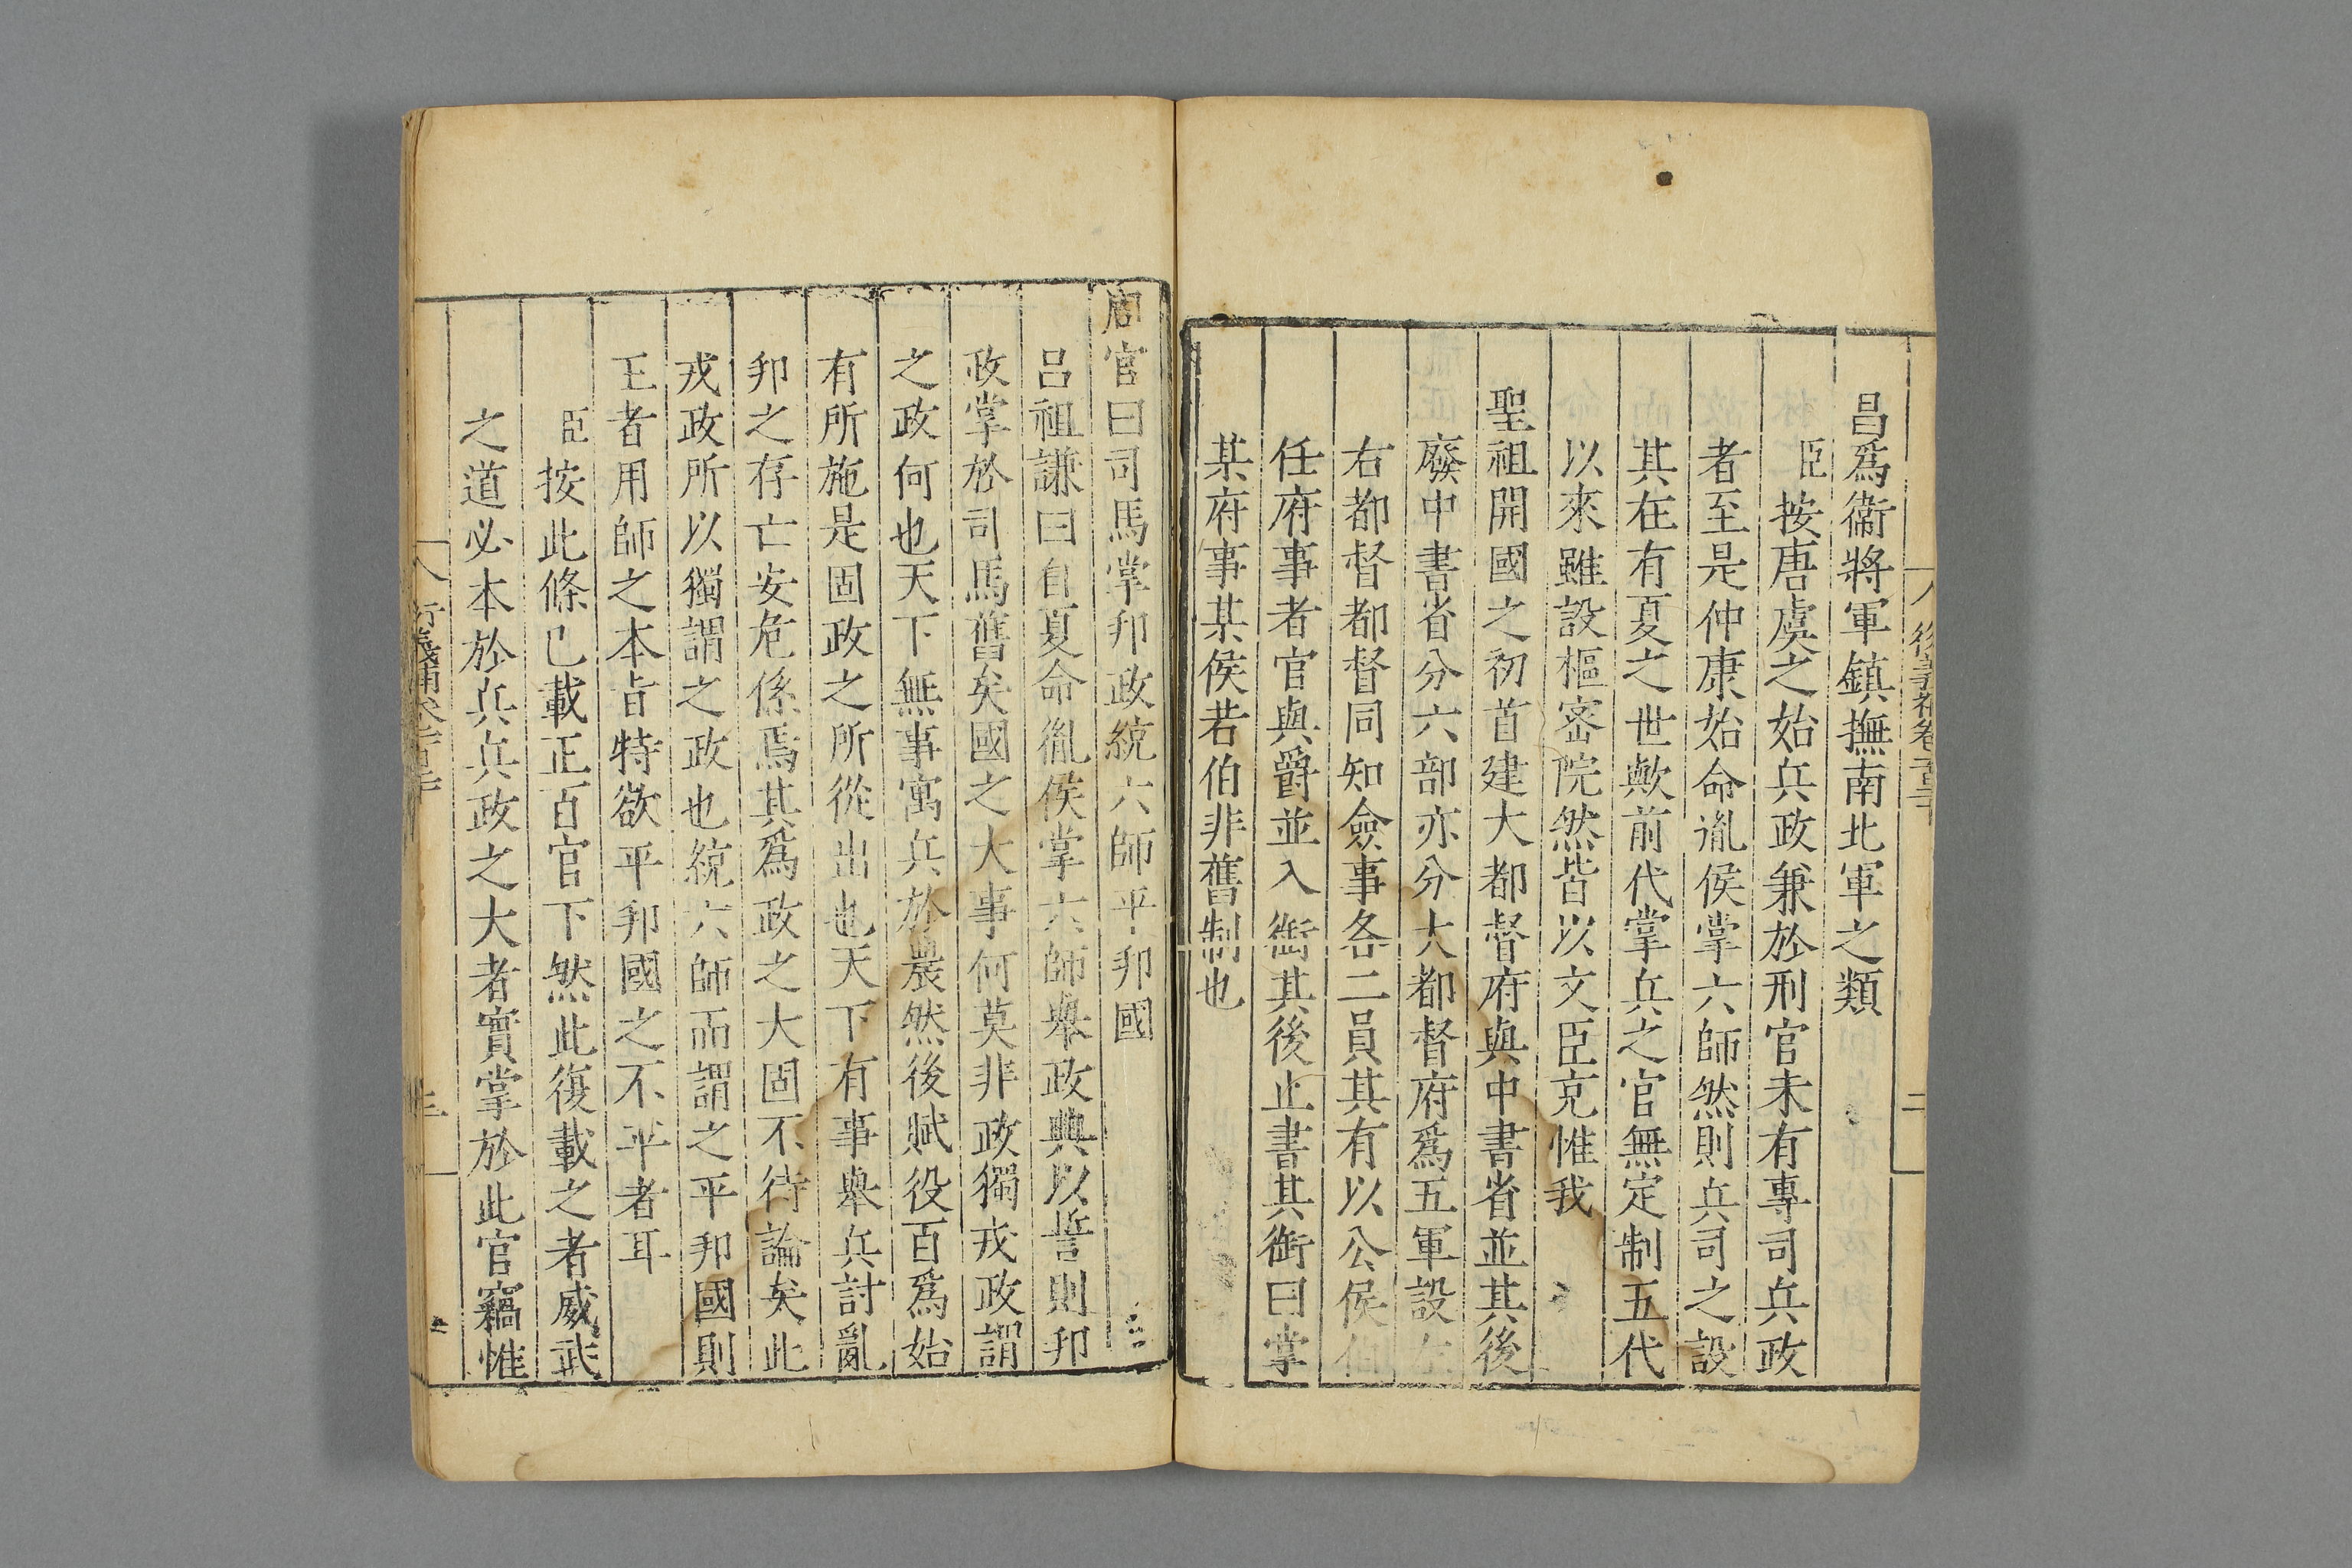 昌爲衞將軍鎮撫南北軍之類
臣按唐虞之始兵政兼於刑官未有專司兵政
者至是仲康始命胤侯掌六師然則兵司之設
其在有夏之世歟前代掌兵之官無定制五代
以來雖設樞密院然皆以文臣充惟我
聖祖開國之初首建大都督府與中書省並其後
廢中書省分六部亦分大都督府爲五軍設左
右都督都督同知僉事各二員其有以公侯伯
任府事者官與爵並入銜其後止書其銜曰掌
某府事某侯若伯非舊制也
二
周官曰司馬掌邦政統六師平邦國
呂祖謙曰自夏命胤侯掌六師舉政典以誓則邦
政掌於司馬舊矣國之大事何莫非政獨戎政謂
之政何也天下無事寓兵於農然後賦役百爲始
有所施是固政之所從出也天下有事舉兵討亂
邦之存亡安危係焉其爲政之大固不待論矣此
戎政所以獨謂之政也統六師而謂之平邦國則
王者用師之本旨特欲平邦國之不平者耳
臣按此條已載正百官下然此復載之者威武
之道必本於兵兵政之大者實掌於此官竊惟
三